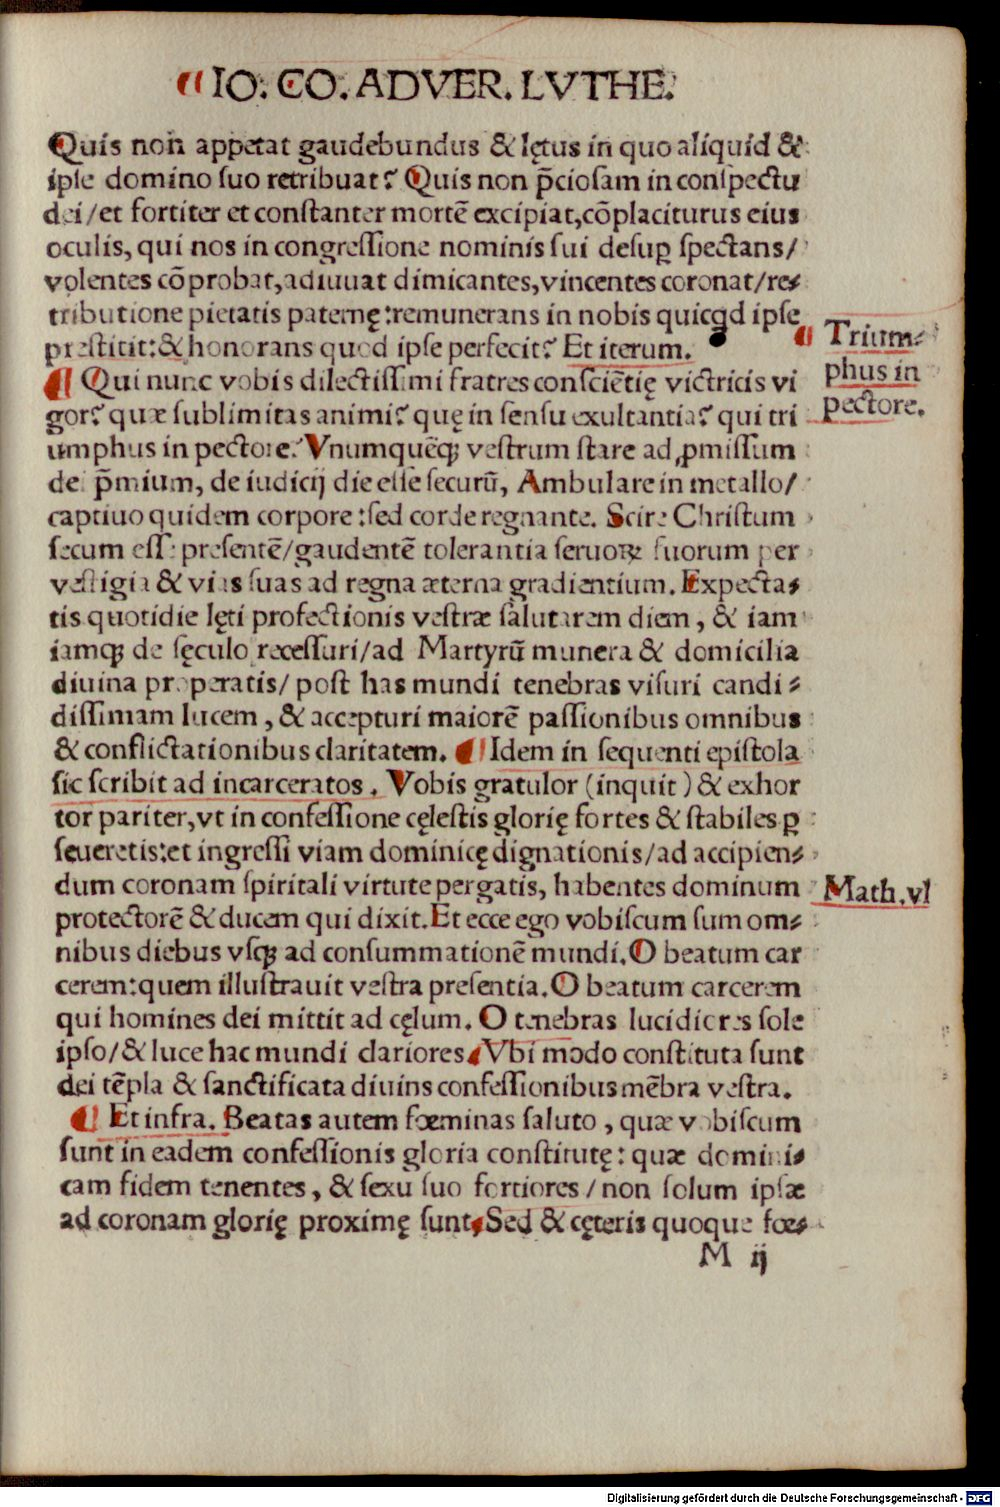 IO. CO. ADVER. LVTHE.
Quis non appetat gaudebundus & lętus in quo aliquid &
ipſe domino ſuo retribuat? Quis non p̄cioſam in conſpectu
dei/et fortiter et conſtanter mortē excipiat,cōplaciturus eius
oculis, qui nos in congreſſione nominis ſui deſuꝑ ſpectans/
volentes cōprobat,adiuuat dimicantes,vincentes coronat/re⸗
tributione pietatis paternę:remunerans in nobis quicqd ipſe
preſtitit:& honorans quod ipſe perfecit? Et iterum.
Trium⸗
phus in
pectore.
¶ Qui nunc vobis dilectiſſimi fratres conſciētię victricis vi
gor? quæ ſublimitas animi? quę in ſenſu exultantia? qui tri
umphus in pectore? Vnumquēqꝫ veſtrum ſtare ad ꝓmiſſum
dei p̄mium, de iudicij die eſſe ſecurū, Ambulare in metallo/
captiuo quidem corpore :ſed corde regnante. Scire Chriſtum
ſecum eſſe preſentē/gaudentē tolerantia ſeruoꝝ ſuorum per
veſtigia & vias ſuas ad regna æterna gradientium. Expecta⸗
tis quotidie lęti profectionis veſtræ ſalutarem diem, & iam
iamqꝫ de ſęculo receſſuri/ad Martyrū munera & domicilia
diuina properatis/ poſt has mundi tenebras viſuri candi⸗
diſſimam lucem, & accepturi maiorē paſſionibus omnibus
& conflictationibus claritatem. ¶ Idem in ſequenti epiſtola
ſic ſcribit ad incarceratos. Vobis gratulor (inquit) & exhor
tor pariter,vt in confeſſione cęleſtis glorię fortes & ſtabiles ꝑ
ſeueretis:et ingreſſi viam dominicę dignationis/ad accipien⸗
dum coronam ſpiritali virtute pergatis, habentes dominum
Math.vl
protectorē & ducem qui dixit. Et ecce ego vobiſcum ſum om⸗
nibus diebus vſqꝫ ad conſummationē mundi. O beatum car
cerem:quem illuſtrauit veſtra preſentia. O beatum carcerem
qui homines dei mittit ad cęlum. O tenebras lucidiores ſole
ipſo/& luce hac mundi clariores. Vbi modo conſtituta ſunt
dei tēpla & ſanctificata diuins confeſſionibus mēbra veſtra.
¶ Et infra. Beatas autem fœminas ſaluto, quæ vobiſcum
ſunt in eadem confeſſionis gloria conſtitutę: quæ domini⸗
cam fidem tenentes, & ſexu ſuo fortiores/ non ſolum ipſæ
ad coronam glorię proximę ſunt, Sed & cęteris quoque fœ⸗
M ij
Digitalisierung gefördert durch die Deutsche Forschungsgemeinschaft - DFG